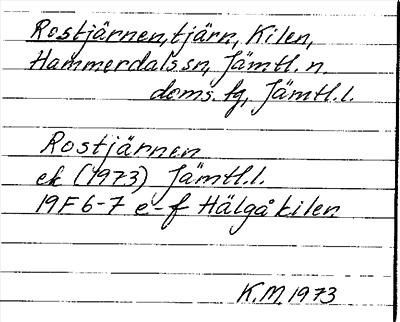 Rostjärnen, tjärn, Kilen,
Hammerdals sn, Jämtl. n.
doms. tg, Jämtl. l.
Rostjärnen
ek (1973) Jämtl. l.
19F 6-7 e-f Hälgåkilen
K.M. 1973